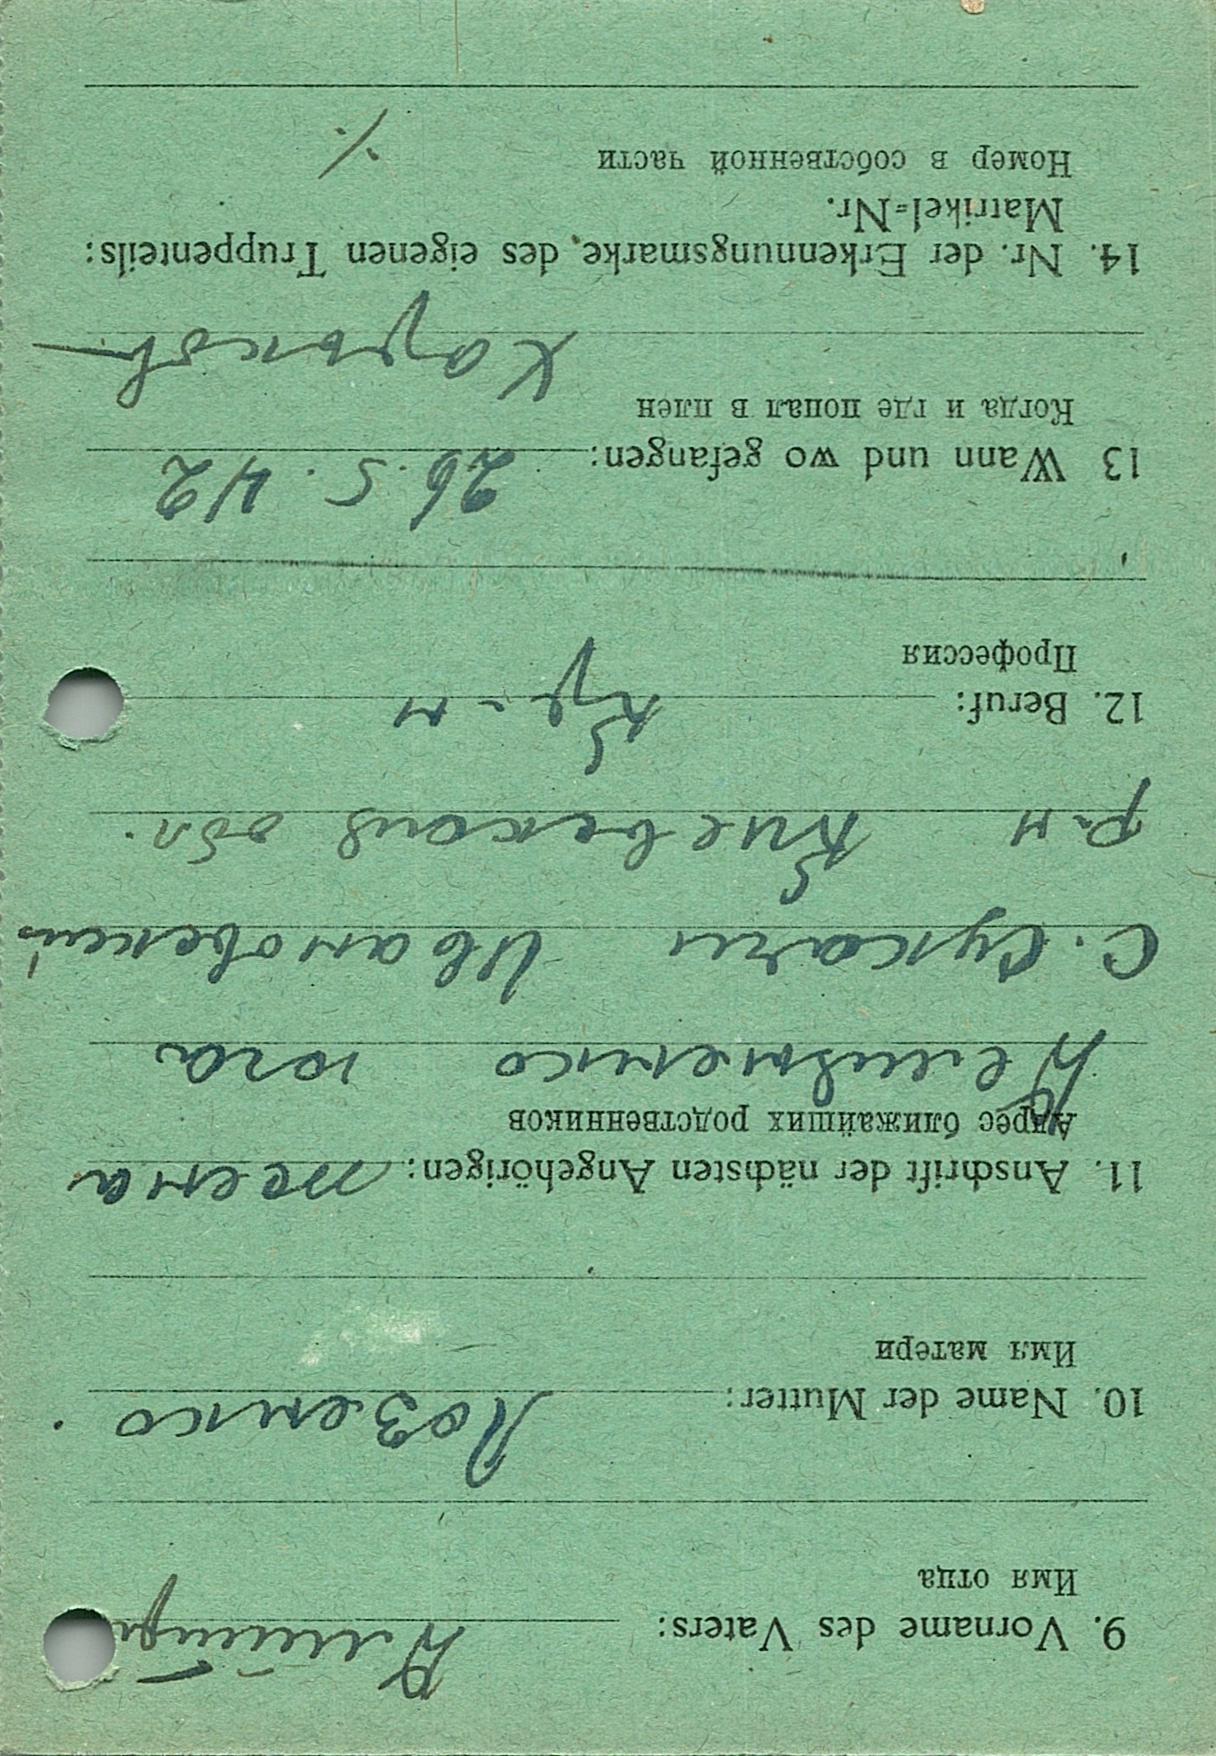 9. Vorname des Vaters: Дмитр
Имя отца
10. Name der Mutter: Лозенко.
Имя матери
11. Anschrift der nächsten Angehörigen: жена
Адрес ближайших родственников
юга
С. Сукачи Ивановский
р-н Киевской обл.
12. Beruf: Кр-н
Профессия
13 Wann und wo gefangen: 26.5.42
Когда и где попал в плен
Харьков
14. Nr. der Erkennungsmarke, des eigenen Truppenteils:
Matrikel=Nr.
Номер в собственной части ./.